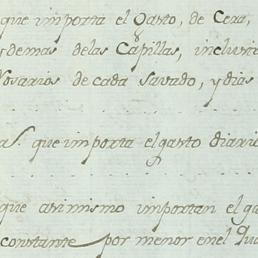 que importa el Gasto, de Cera,
y demas de las Capillas, inclusive
Rosarios de cada Savado, y dias
que importa el gasto diario
que asimismo importan el ga
constante por menor en el Qua